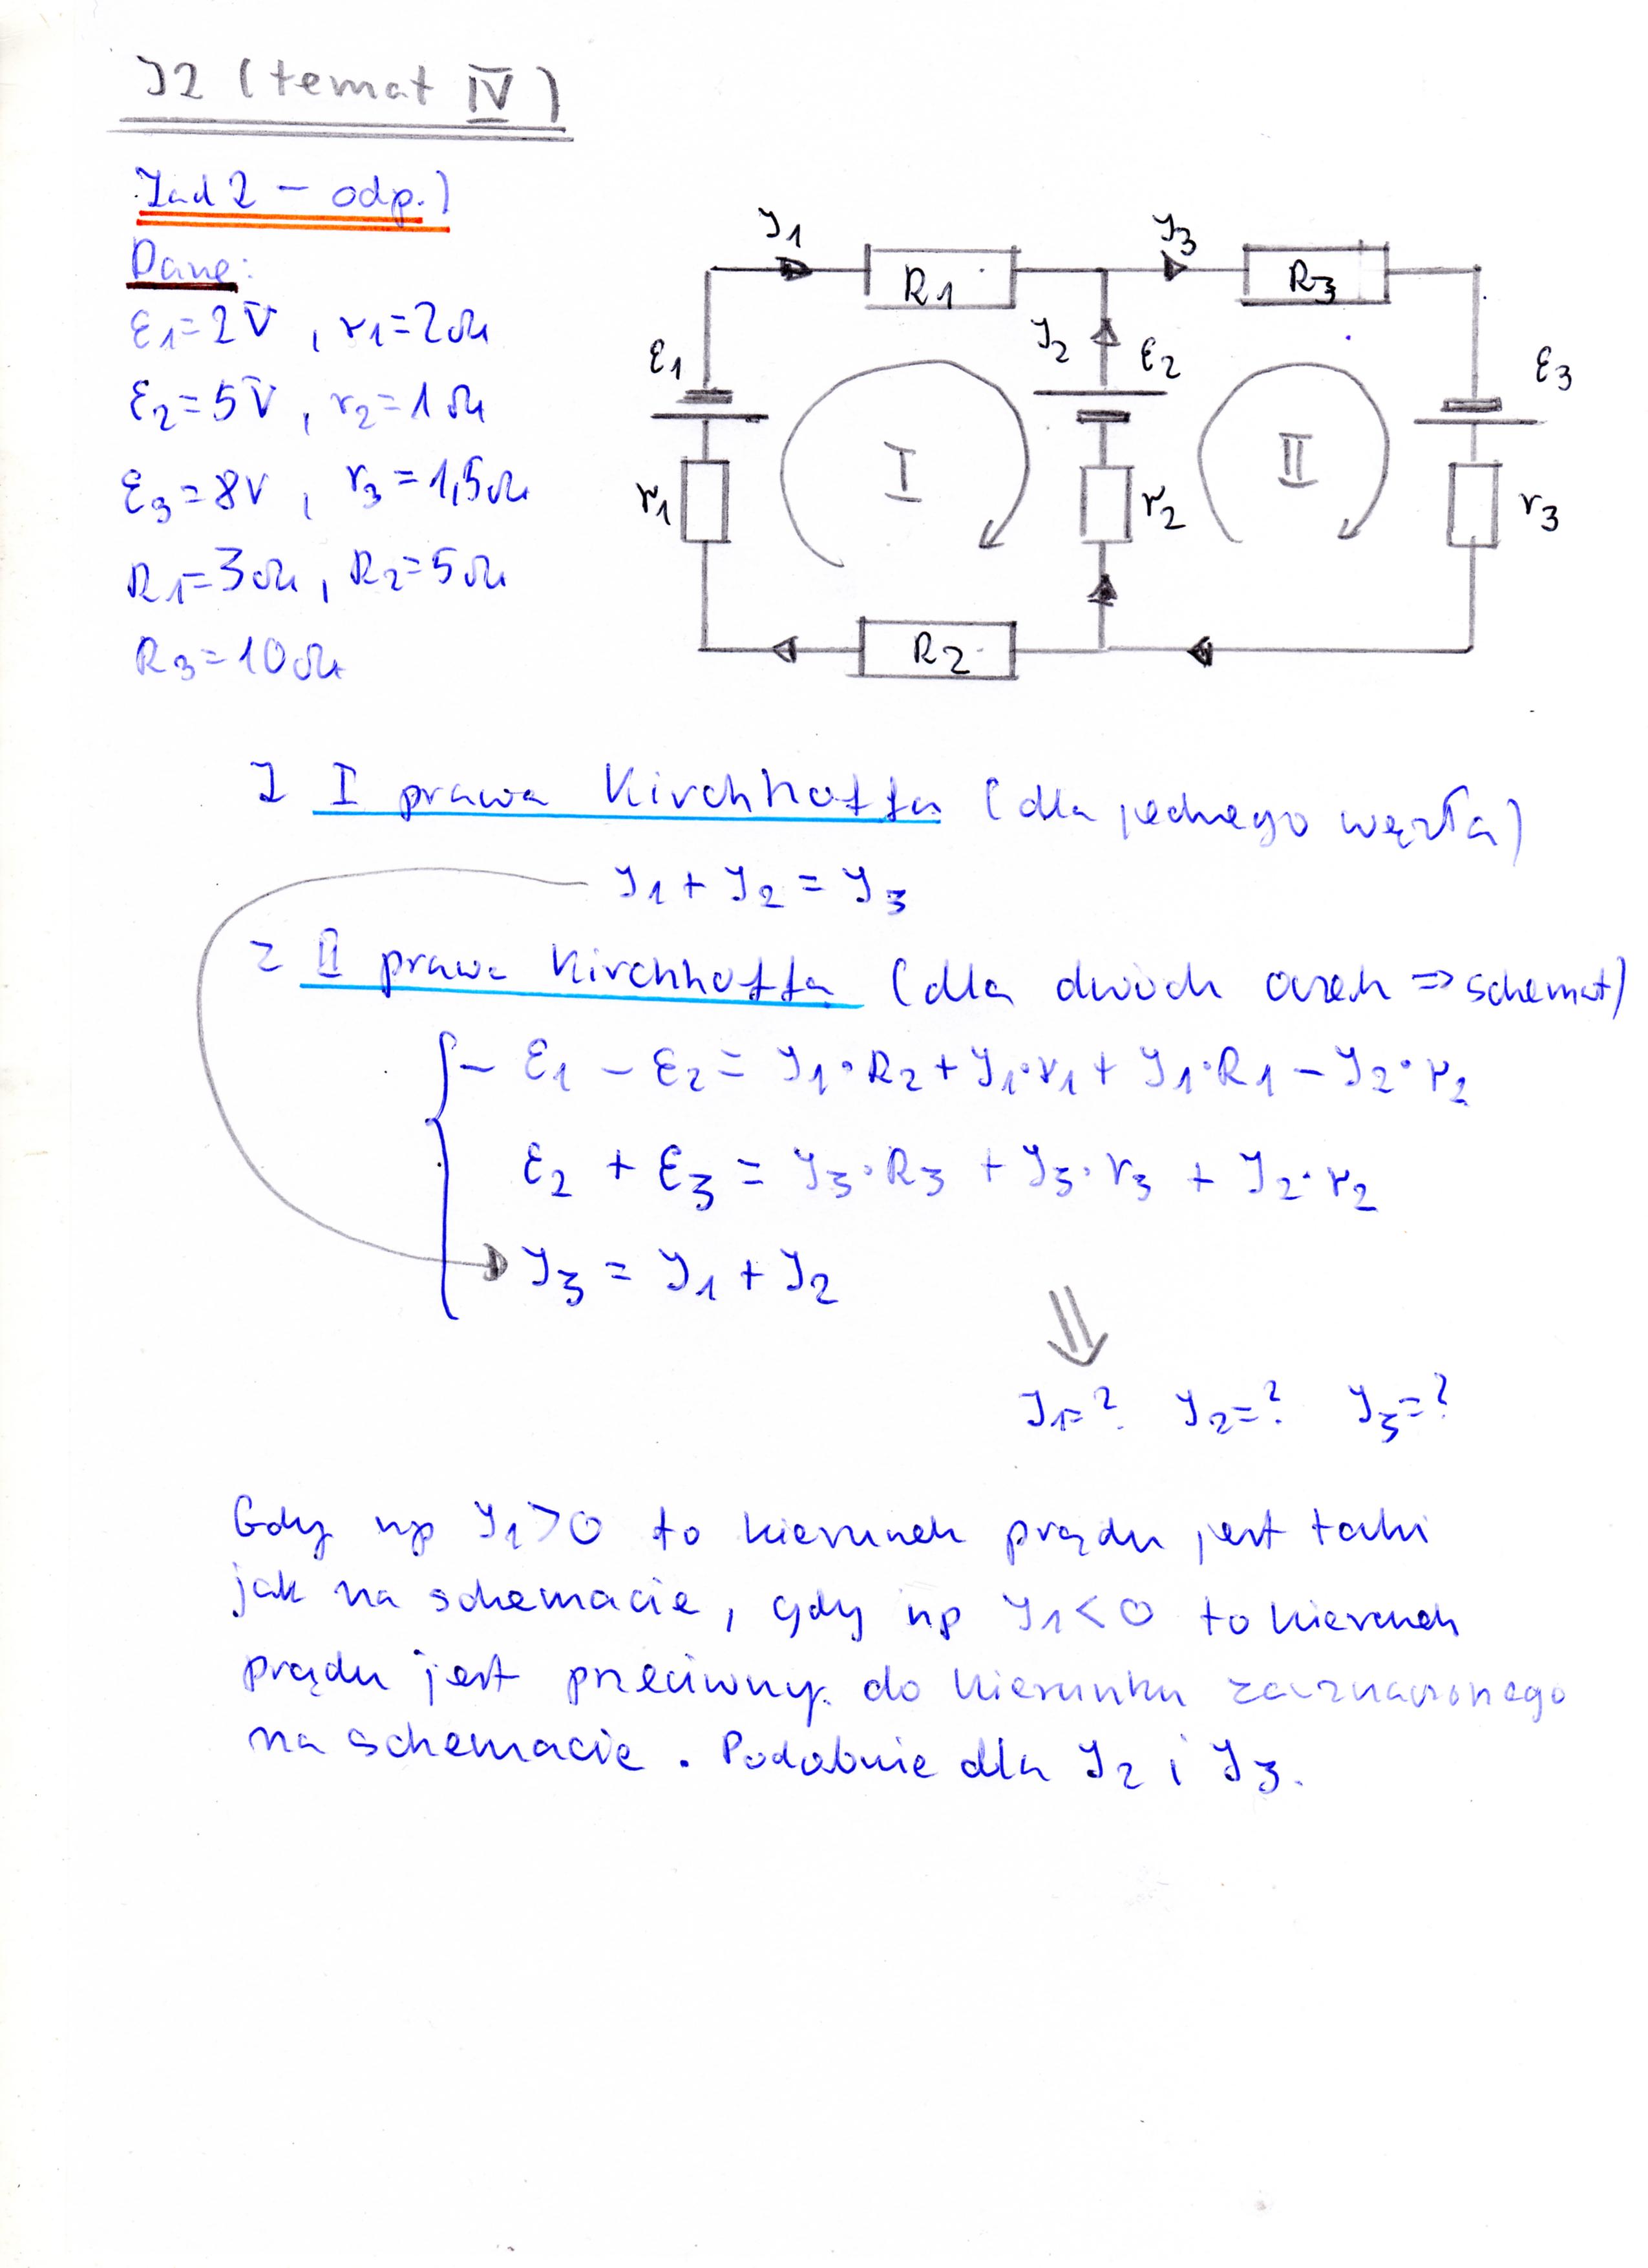 J2 (temat IV)
Zad 2 - odp.)
Dane:
ε1=2V, r1=2Ω
ε2=5V, r2=1Ω
ε3=8V, r3=1,5Ω
R1=3Ω, R2=5Ω
R3=10Ω
I1 R1 I3 R3
ε1 I2 ε2 ε3
r1 I r2 II r3
R2
Z I prawa Kirchhoffa (dla jednego węzła)
I1 + I2 = I3
Z II prawa Kirchhoffa (dla dwóch oczek => schemat)
- ε1 - ε2 = I1·R2 + I1·r1 + I1·R1 - I2·r2
ε2 + ε3 = I3·R3 + I3·r3 + I2·r2
I3 = I1 + I2
I1=? I2=? I3=?
Gdy np I1>0 to kierunek prądu jest taki
jak na schemacie, gdy np I1<0 to kierunek
prądu jest przeciwny do kierunku zaznaczonego
na schemacie. Podobnie dla I2 i I3.